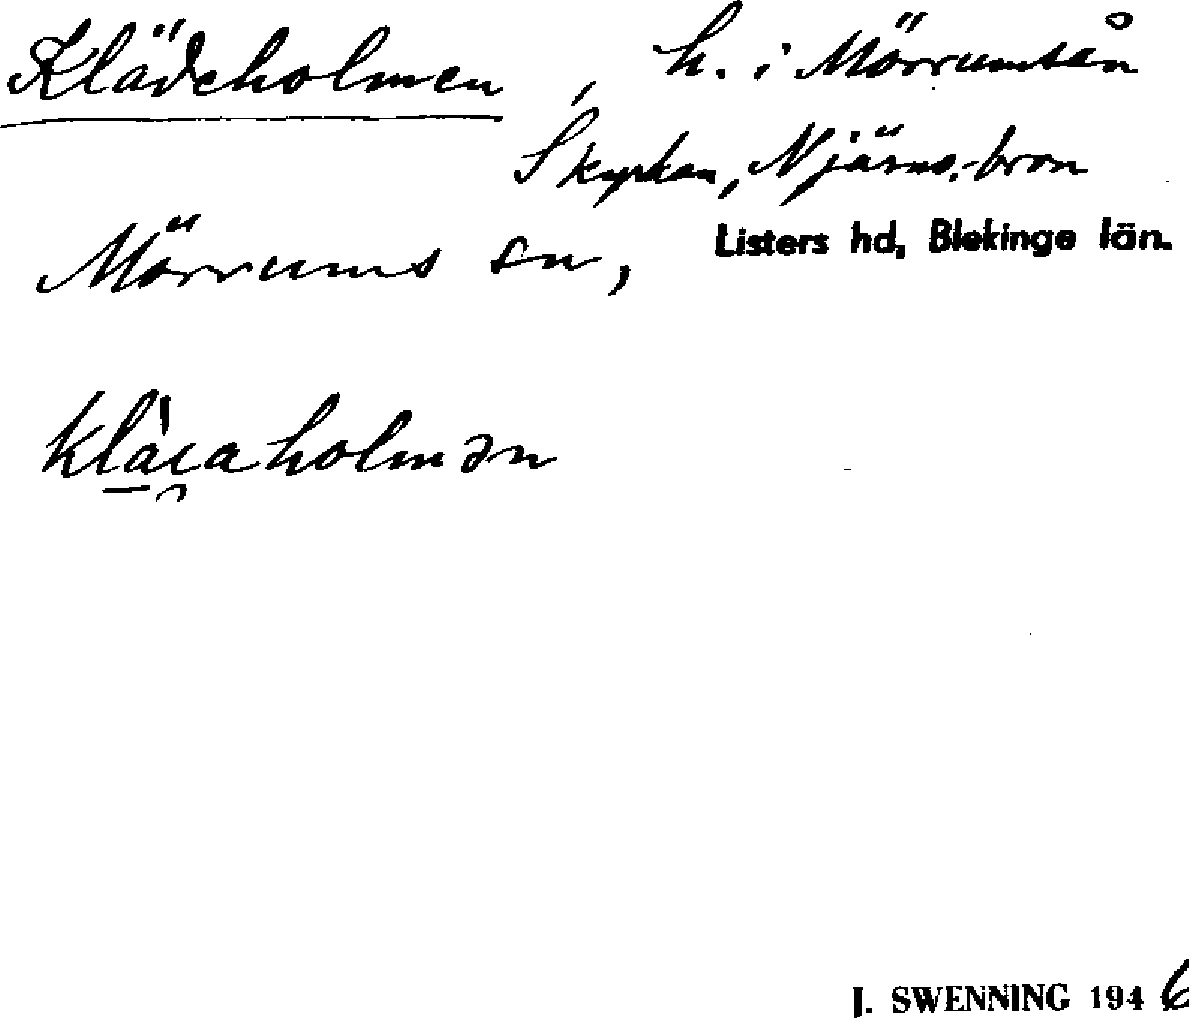 Klädeholmen, h. i Mörrumsån
S kyrkan, N järnv.-bron
Mörrums sn, Listers hd, Blekinge län.
klàɩ̯aholmən
J. SWENNING 1946